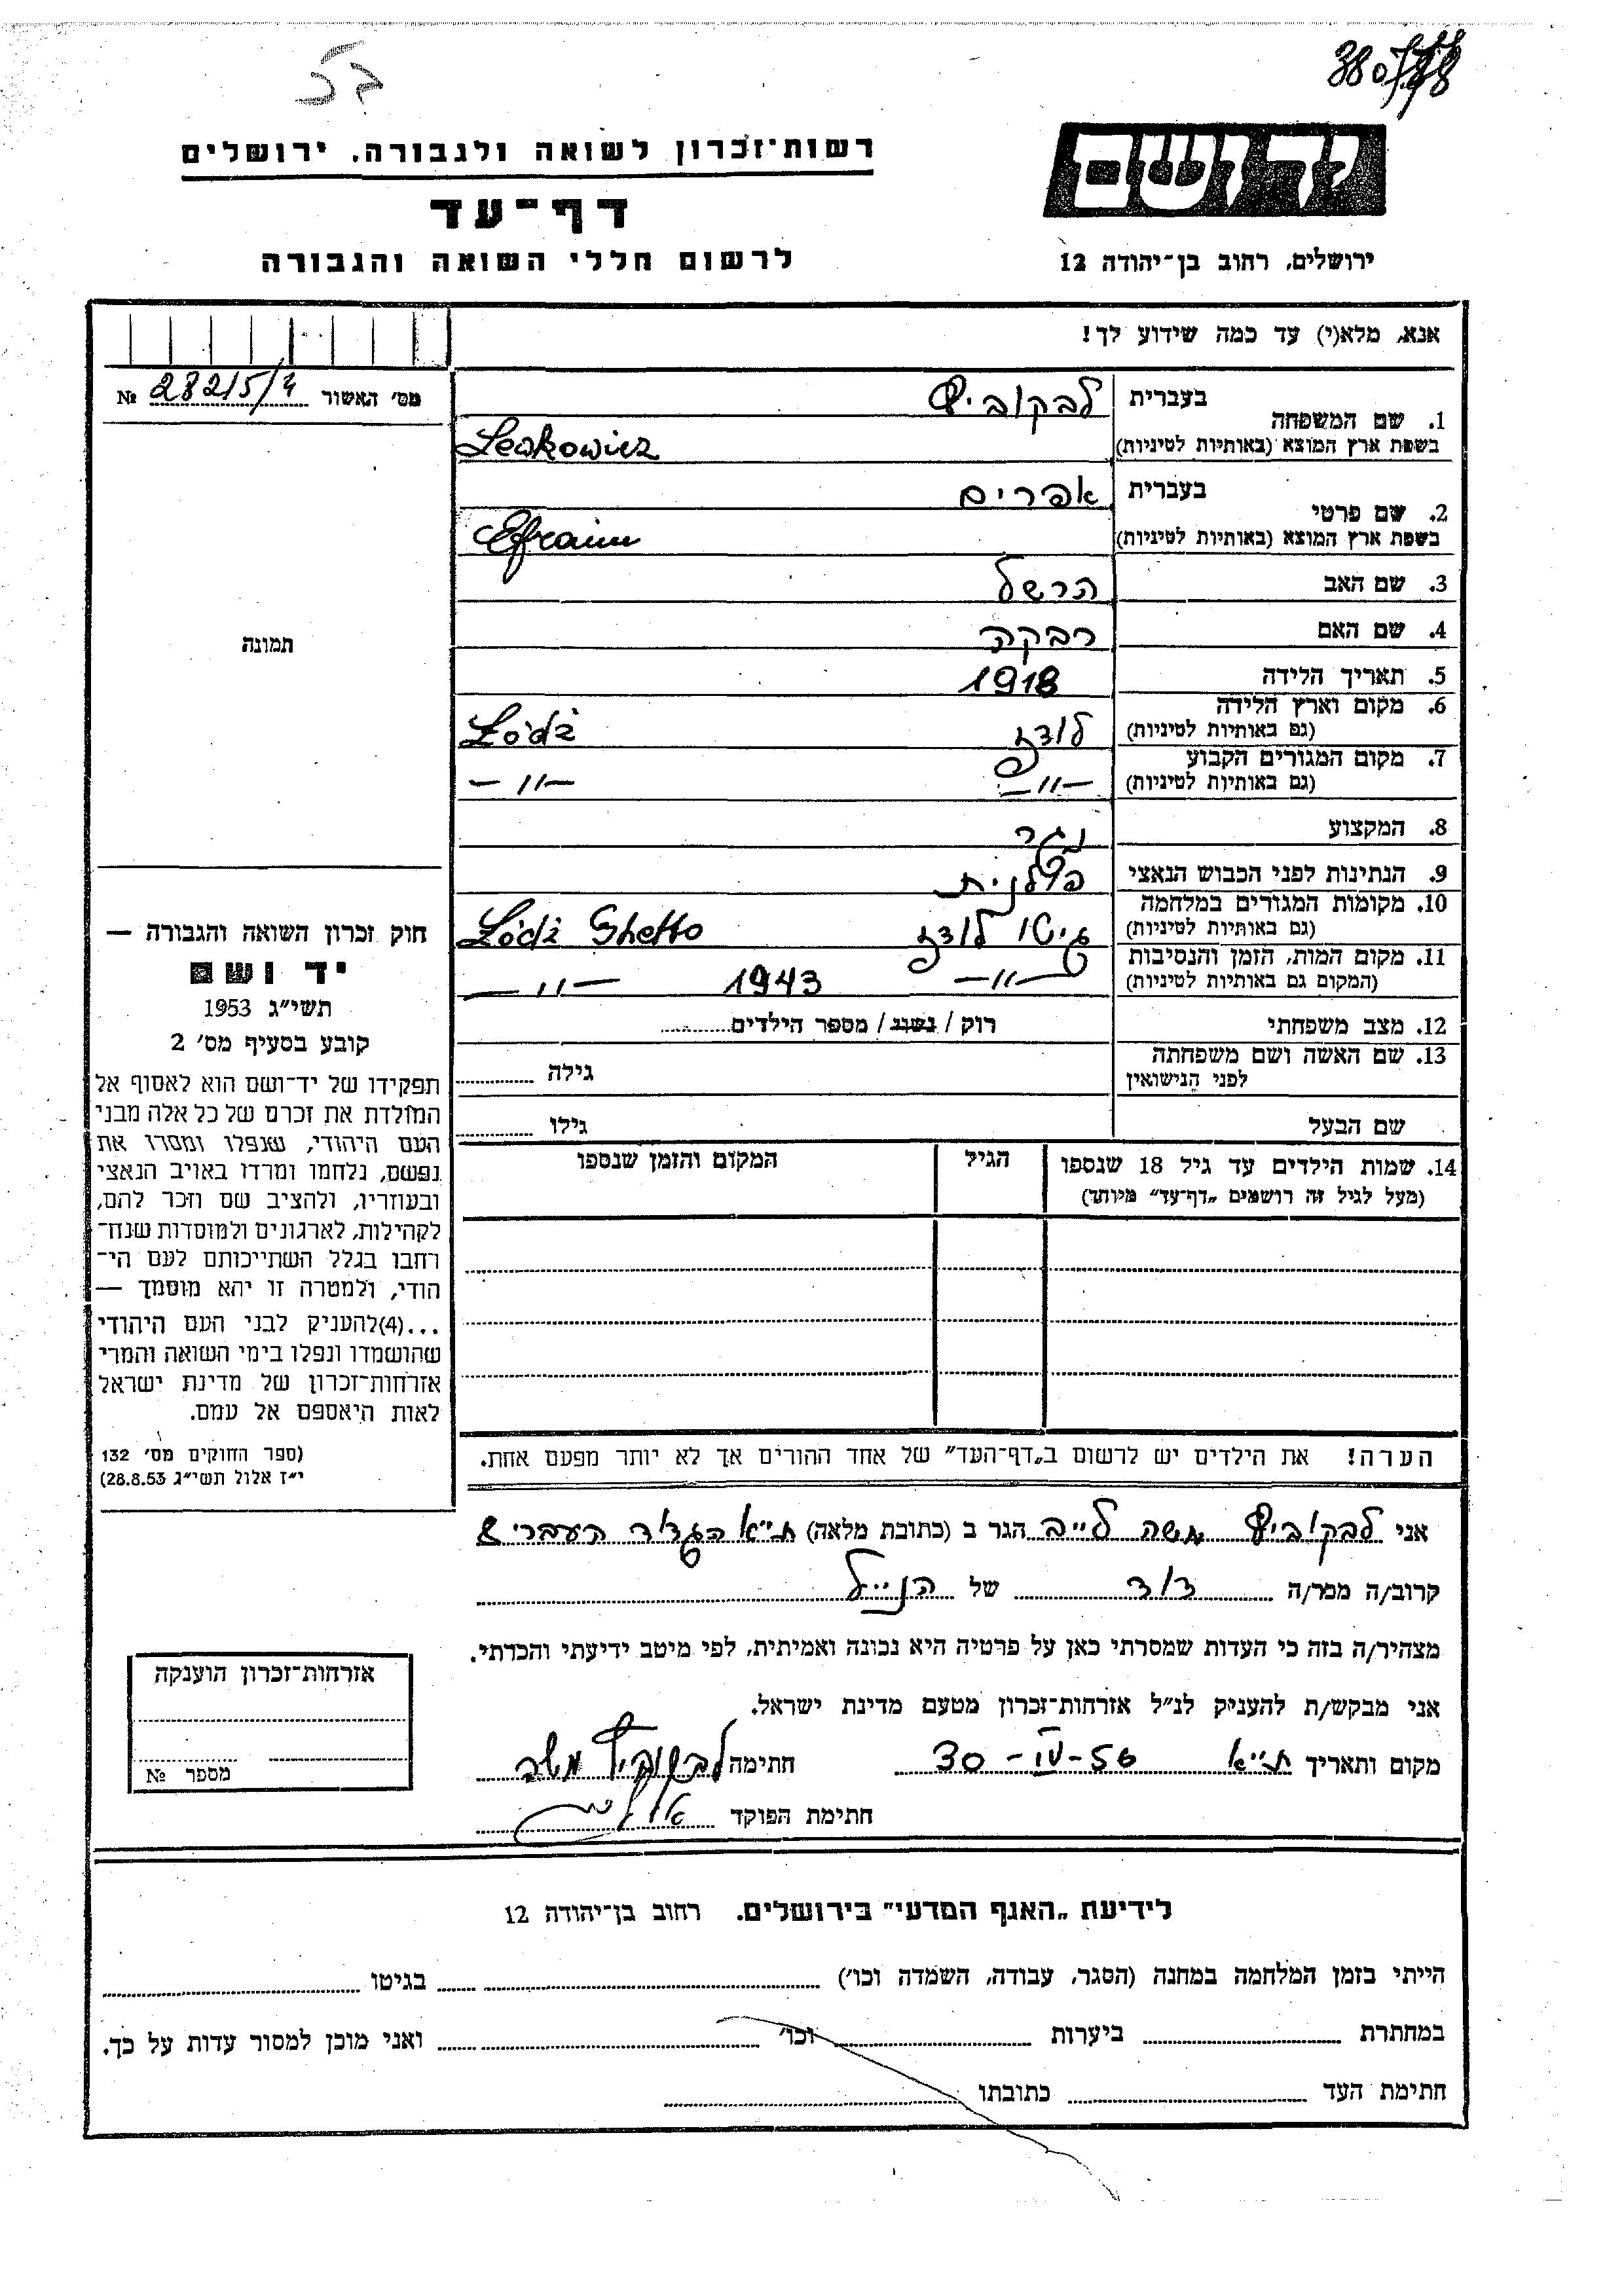 יד ושם
ירושלים, רחוב בן־יהודה 12
רשות־זכרון לשואה ולגבורה, ירושלים
דף־עד
לרשום חללי השואה והגבורה
אנא, מלא(י) עד כמה שידוע לך!
מס׳ האשור № 28215/4
1. שם המשפחה
בעברית לבקוביץ
בשפת ארץ המוצא (באותיות לטיניות) Lewkowicz
2. שם פרטי
בעברית אפרים
בשפת ארץ המוצא (באותיות לטיניות) Efraim
3. שם האב הרשל
4. שם האם רבקה
5. תאריך הלידה 1918
6. מקום וארץ הלידה
(גם באותיות לטיניות) לודז Łódź
7. מקום המגורים הקבוע
(גם באותיות לטיניות) –״– –״–
8. המקצוע נגר
9. הנתינות לפני הכבוש הנאצי פולנית
10. מקומות המגורים במלחמה
(גם באותיות לטיניות) גיטו לודז Łódź Ghetto
11. מקום המות, הזמן והנסיבות
(המקום גם באותיות לטיניות) –״– 1943 –״–
12. מצב משפחתי רוק / נשוי / מספר הילדים
13. שם האשה ושם משפחתה
לפני הנישואין גילה
שם הבעל גילו
14. שמות הילדים עד גיל 18 שנספו
(מעל לגיל זה רושמים „דף־עד״ מיוחד)
הגיל
המקום והזמן שנספו
הערה! את הילדים יש לרשום ב„דף־העד״ של אחד ההורים אך לא יותר מפעם אחת.
תמונה
חוק זכרון השואה והגבורה —
יד ושם
תשי״ג 1953
קובע בסעיף מס׳ 2
תפקידו של יד־ושם הוא לאסוף אל
המולדת את זכרם של כל אלה מבני
העם היהודי, שנפלו ומסרו את
נפשם, נלחמו ומרדו באויב הנאצי
ובעוזריו, ולהציב שם וזכר להם,
לקהילות, לארגונים ולמוסדות שנח־
רחבו בגלל השתייכותם לעם הי־
הודי, ולמטרה זו יהא מוסמך —
...(4)להעניק לבני העם היהודי
שהושמדו ונפלו בימי השואה והמרי
אזרחות־זכרון של מדינת ישראל
לאות היאספם אל עמם.
(ספר החוקים מס׳ 132
י״ז אלול תשי״ג 28.8.53)
אני לבקוביץ משה לייב הגר ב (כתובת מלאה) ת״א הגדוד העברי 8
קרוב/ה מכר/ה דוד של הנ״ל
מצהיר/ה בזה כי העדות שמסרתי כאן על פרטיה היא נכונה ואמיתית, לפי מיטב ידיעתי והכרתי.
אני מבקש/ת להעניק לנ״ל אזרחות־זכרון מטעם מדינת ישראל.
מקום ותאריך ת״א 30-IV-56 חתימה לבקוביץ משה
חתימת הפוקד
אזרחות־זכרון הוענקה
מספר №
לידיעת „האגף המדעי״ בירושלים. רחוב בן־יהודה 12
הייתי בזמן המלחמה במחנה (הסגר, עבודה, השמדה וכו׳) בגיטו
במחתרת ביערות וכו׳ ואני מוכן למסור עדות על כך.
חתימת העד כתובתו